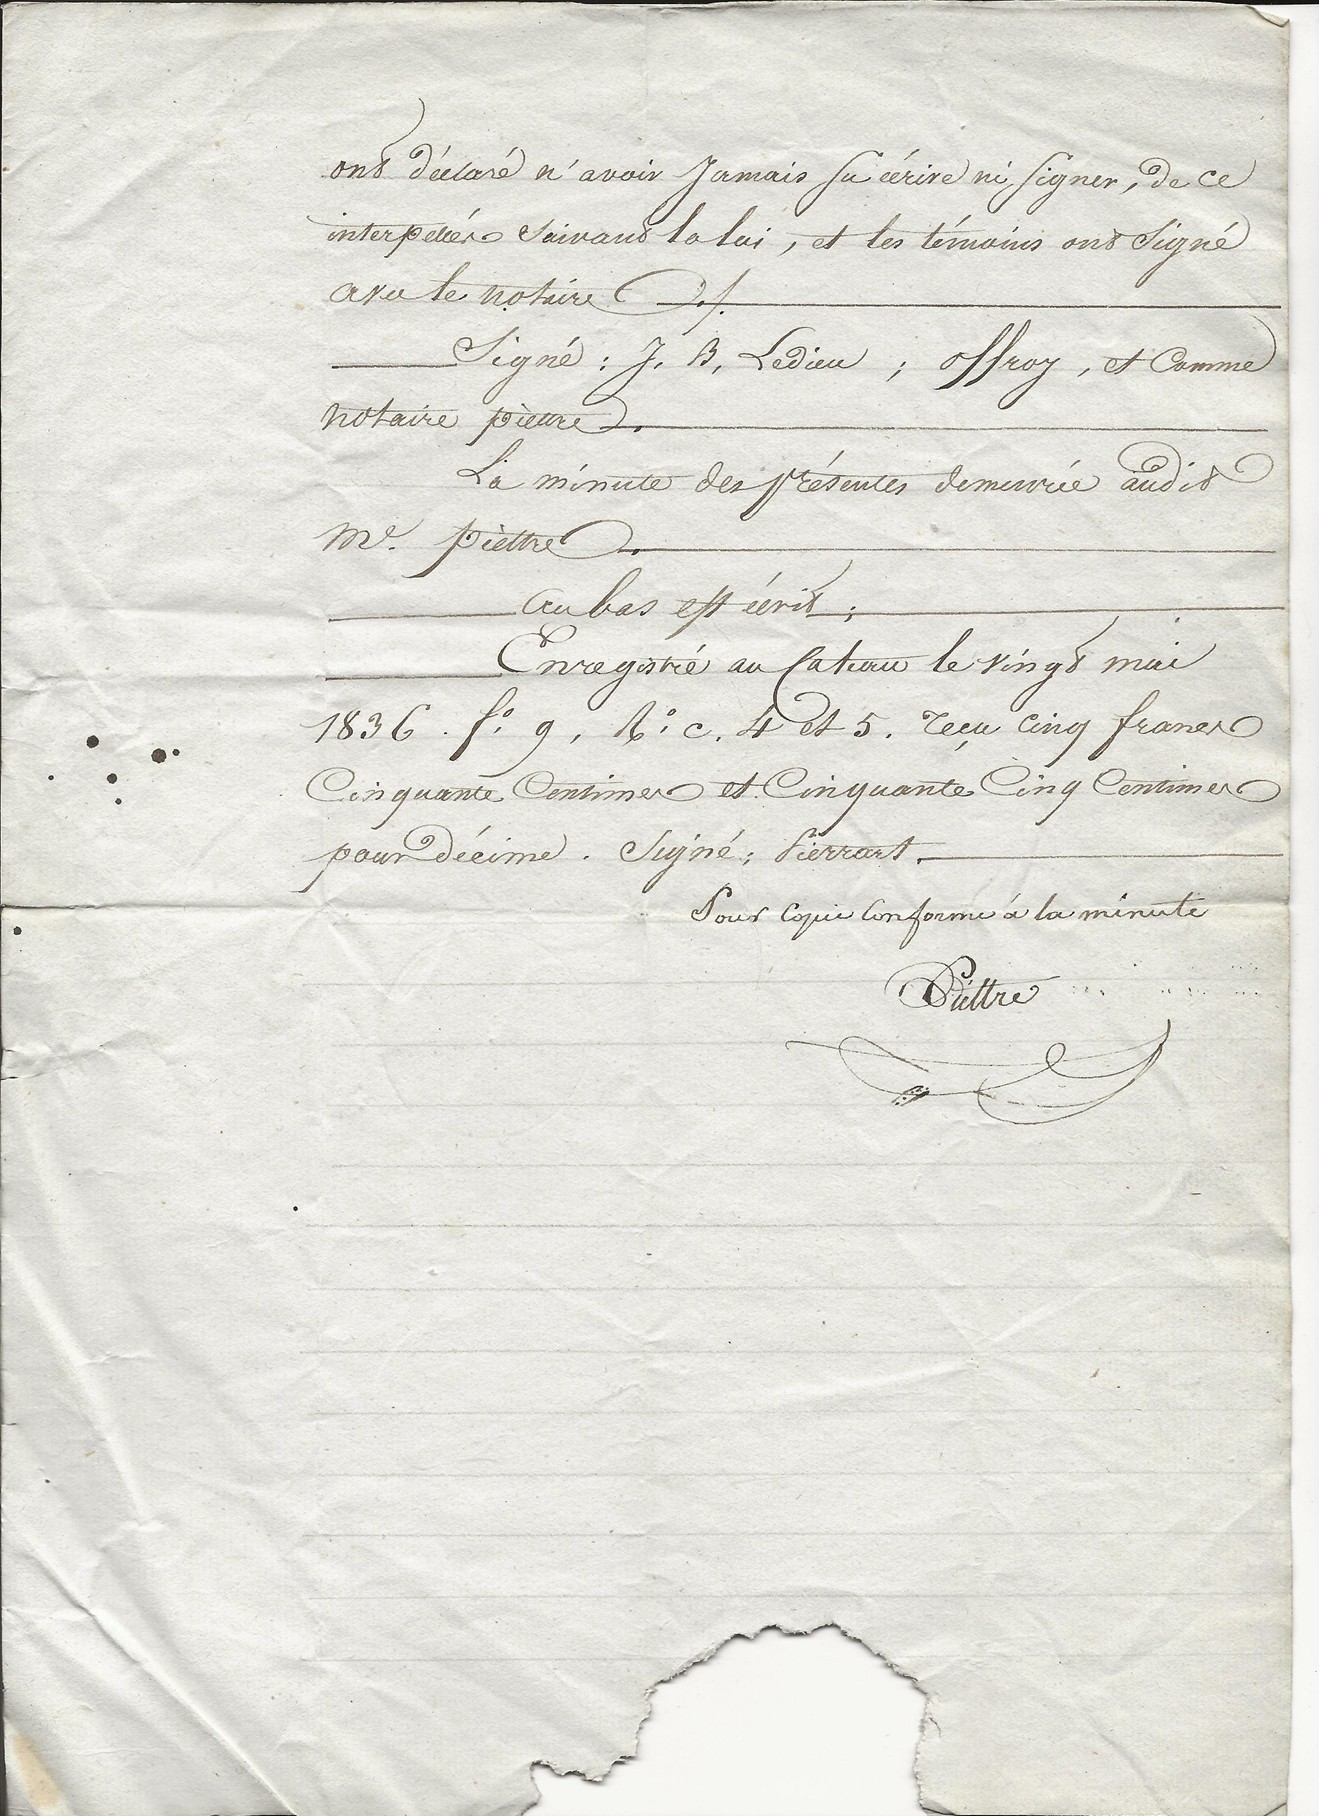 ont déclaré n'avoir Jamais su écrire ni signer, de ce
interpellés suivant la loi, et les témoins ont signé
avec le notaire ./.
Signé : J. B. Ledieu ; offroy, et Comme
notaire piettre.
La minute des présentes demeurée audit
Me. piettre.
Au bas est écrit :
Enregistré au Cateau le vingt mai
1836. fo. 9, Ro. c. 4 et 5. reçu cinq francs
Cinquante Centimes et Cinquante Cinq Centimes
pour décime. Signé : Pierrart.
Pour copie conforme à la minute
Piettre